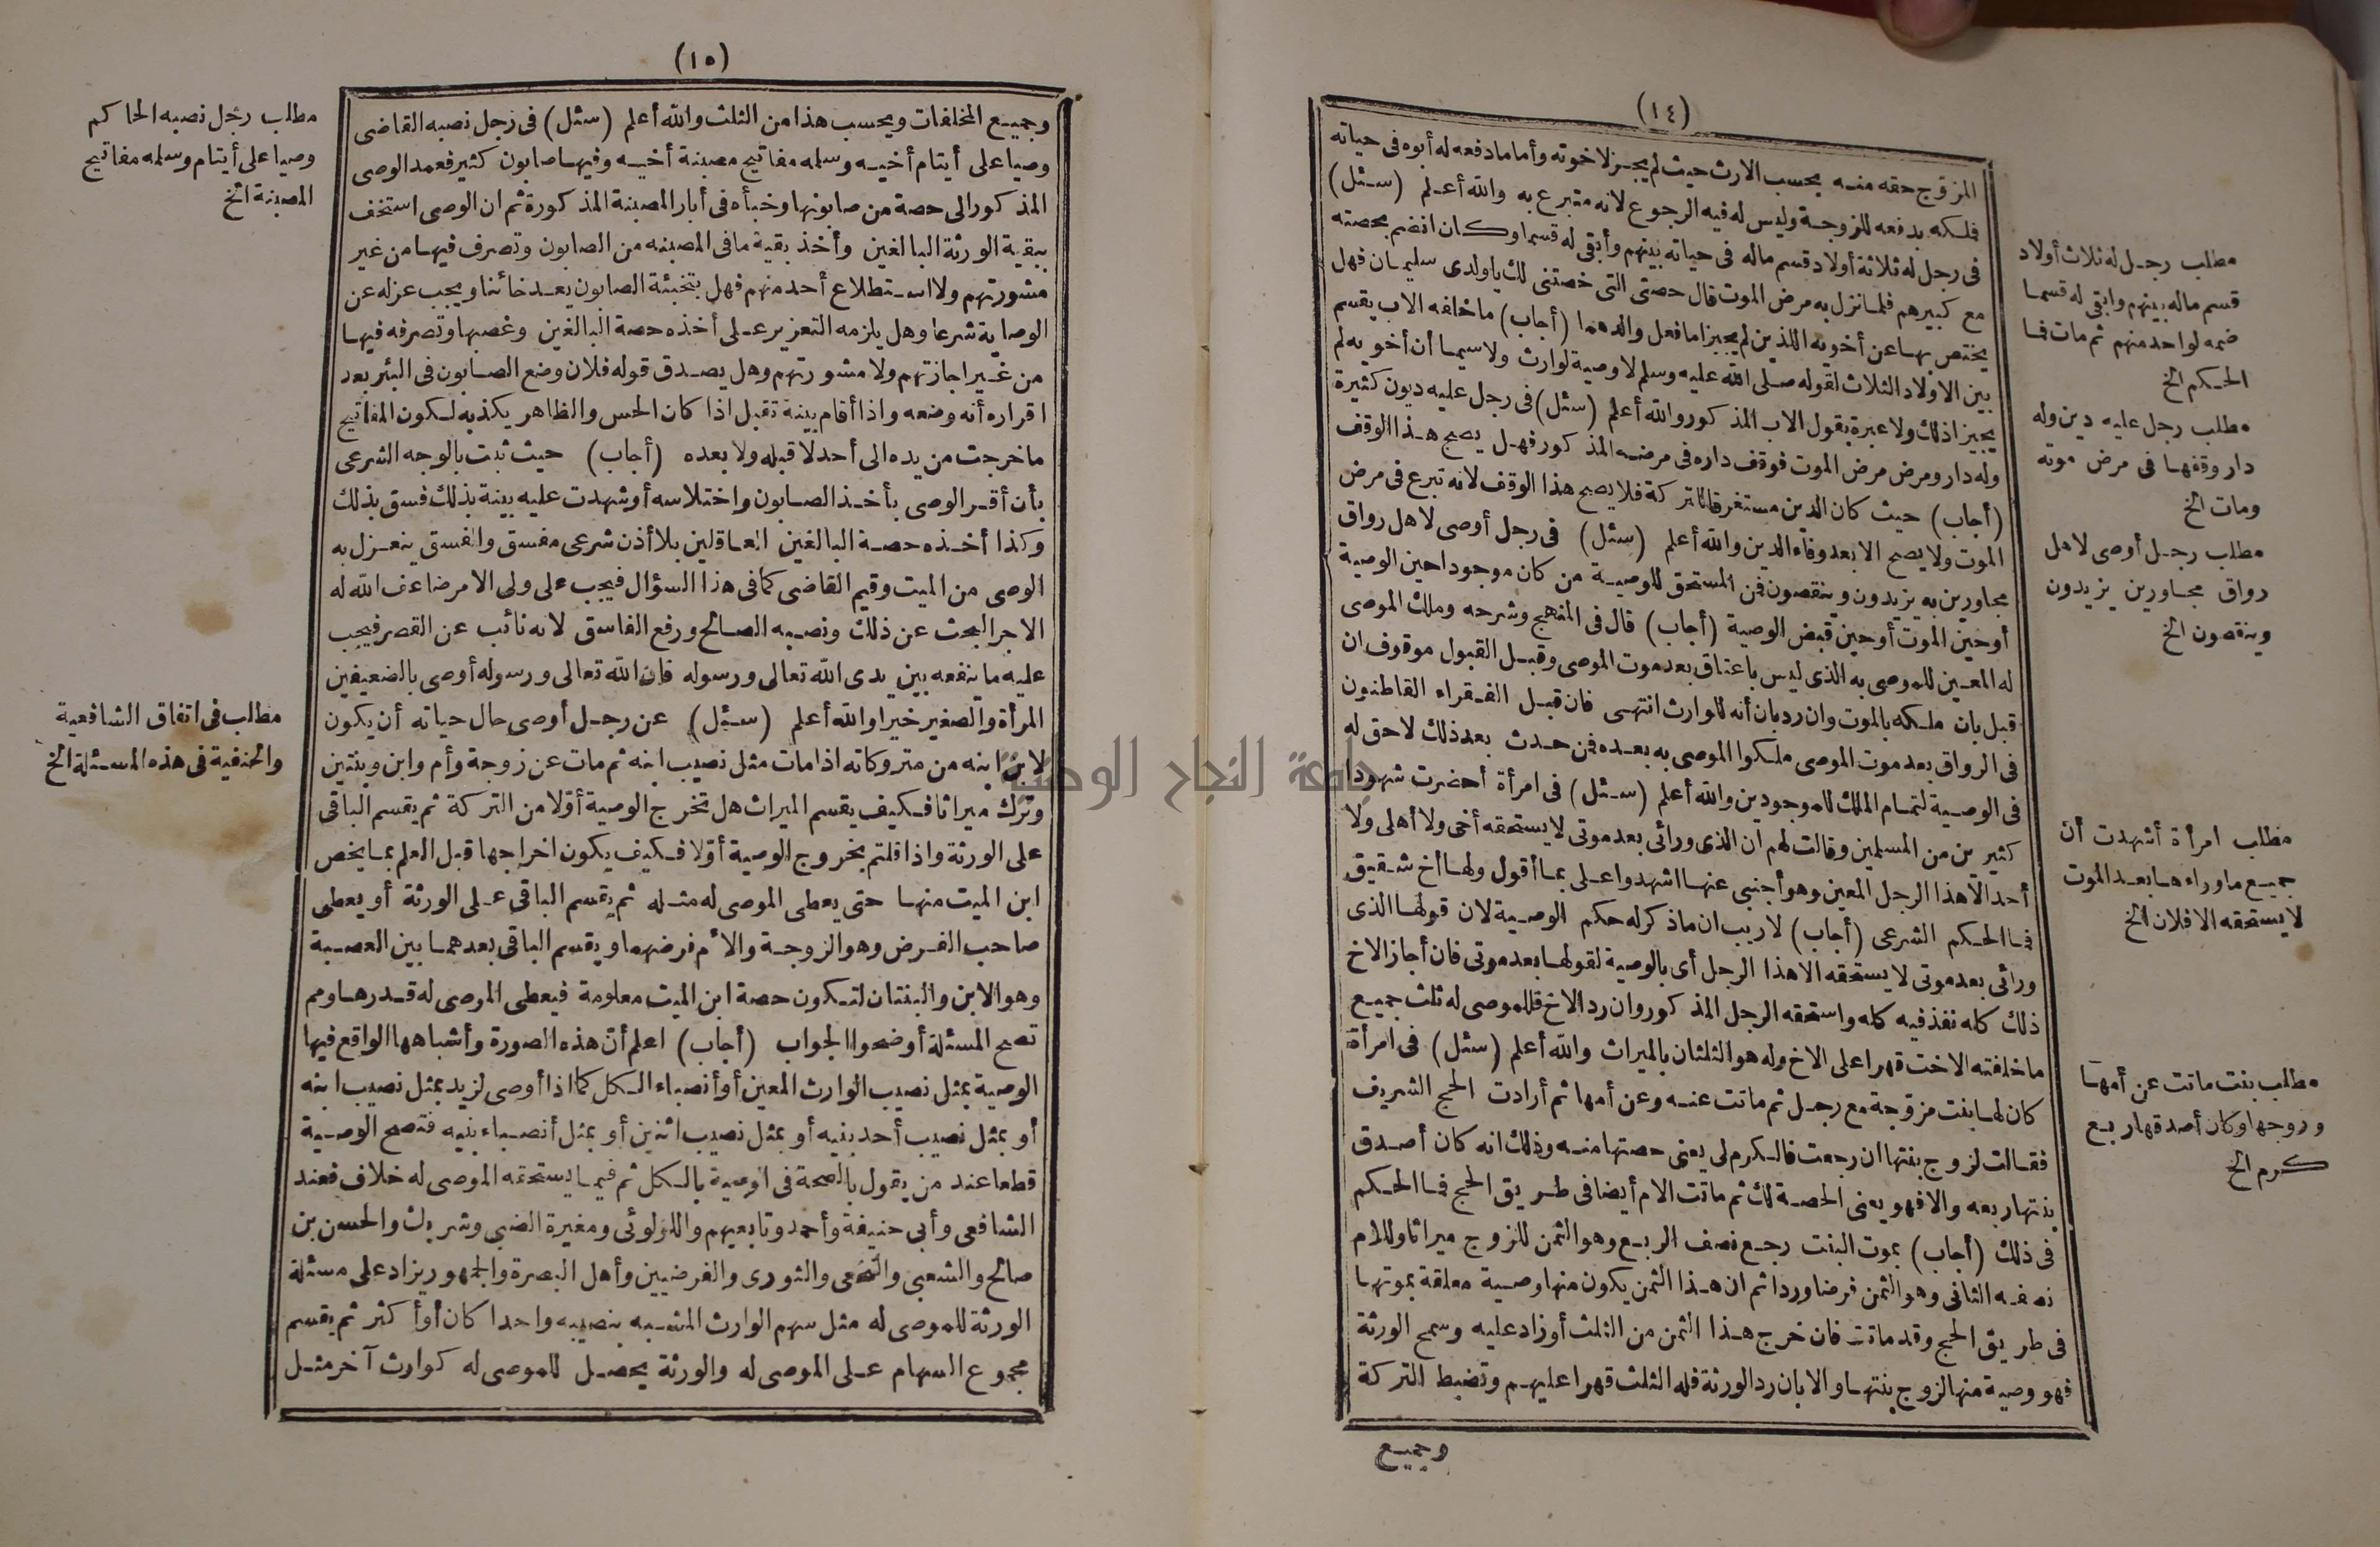 (١٤)
المزوّج حقه منه بحسب الارث حيث لم يجز لاخوته وأما مادفعه له أبوه فى حياته
فملكه بدفعه للزوجة وليس له فيه الرجوع لانه متبرع به والله أعلم (سئل)
فى رجل له ثلاثة أولاد قسم ماله فى حياته بينهم وأبقى له قسما وكان انضم بحصته
مع كبيرهم فلما نزل به مرض الموت قال حصتى التى خصتنى لك ياولدى سليمان فهل
يختص بها عن أخويه اللذين لم يجيزا مافعل والدهما (أجاب) ماخلفه الاب يقسم
بين الاولاد الثلاث لقوله صلى الله عليه وسلم لاوصية لوارث ولاسيما أن أخويه لم
يجيزا ذلك ولا عبرة بقول الاب المذكور والله أعلم (سئل) فى رجل عليه ديون كثيرة
وله دار ومرض مرض الموت فوقف داره فى مرضه المذكور فهل يصح هذا الوقف
(أجاب) حيث كان الدين مستغرقا للتركة فلا يصح هذا الوقف لانه تبرع فى مرض
الموت ولا يصح الا بعد وفاء الدين والله أعلم (سئل) فى رجل أوصى لاهل رواق
مجاورين به يزيدون وينقصون فمن المستحق للوصية من كان موجودا حين الوصية
أوحين الموت أوحين قبض الوصية (أجاب) قال فى المنهج وشرحه وملك الموصى
له المعين للموصى به الذى ليس باعتاق بعد موت الموصى وقبل القبول موقوف ان
قبل بان ملكه بالموت وان رد بان أنه للوارث انتهى فان قبل الفقراء القاطنون
فى الرواق بعد موت الموصى ملكوا الموصى به بعده فمن حدث بعد ذلك لاحق له
فى الوصية لتمام الملك للموجودين والله أعلم (سئل) فى امرأة أحضرت شهودا
كثيرين من المسلمين وقالت لهم ان الذى ورائى بعد موتى لا يستحقه أخى ولا أهلى ولا
أحد الا هذا الرجل المعين وهو أجنبى عنها اشهدوا على بما أقول ولها أخ شقيق
فما الحكم الشرعى (أجاب) لاريب ان ماذكر له حكم الوصية لان قولها الذى
ورائى بعد موتى لا يستحقه الا هذا الرجل أى بالوصية لقولها بعد موتى فان أجاز الاخ
ذلك كله نفذ فيه كله واستحقه الرجل المذكور وان رد الاخ فللموصى له ثلث جميع
ماخلفته الاخت قهرا على الاخ وله هو الثلثان بالميراث والله أعلم (سئل) فى امرأة
كان لها بنت مزوّجة مع رجل ثم ماتت عنه وعن أمها ثم أرادت الحج الشريف
فقالت لزوج بنتها ان رجعت فالكرم لى يعنى حصتها منه وذلك انه كان أصدق
بنتها ربعه والا فهو يعنى الحصة لك ثم ماتت الام أيضا فى طريق الحج فما الحكم
فى ذلك (أجاب) بموت البنت رجع نصف الربع وهو الثمن للزوج ميراثا وللام
نصفه الثانى وهو الثمن فرضا وردا ثم ان هذا الثمن يكون منها وصية معلقة بموتها
فى طريق الحج وقد ماتت فان خرج هذا الثمن من الثلث أو زاد عليه وسمح الورثة
فهو وصية منها لزوج بنتها والا بان رد الورثة فله الثلث قهرا عليهم وتضبط التركة
وجميع
مطلب رجل له ثلاث أولاد
قسم ماله بينهم وابقى له قسما
ضمه لواحد منهم ثم مات فما
الحكم الخ
مطلب رجل عليه دين وله
دار وقفها فى مرض موته
ومات الخ
مطلب رجل أوصى لاهل
رواق مجاورين يزيدون
وينقصون الخ
مطلب امرأة أشهدت أن
جميع ماوراءها بعد الموت
لا يستحقه الا فلان الخ
مطلب بنت ماتت عن أمها
وزوجها وكان أصدقها ربع
كرم الخ
(١٥)
وجميع المخلفات ويحسب هذا من الثلث والله أعلم (سئل) فى رجل نصبه القاضى
وصيا على أيتام أخيه وسلمه مفاتيح مصبنة أخيه وفيها صابون كثير فعمد الوصى
المذكور الى حصة من صابونها وخبأه فى أبار المصبنة المذكورة ثم ان الوصى استخف
ببقية الورثة البالغين وأخذ بقية مافى المصبنه من الصابون وتصرف فيها من غير
مشورتهم ولا استطلاع أحد منهم فهل بتخبئة الصابون يعد خائنا ويجب عزله عن
الوصاية شرعا وهل يلزمه التعزير على أخذه حصة البالغين وغصبها وتصرفه فيها
من غير اجازتهم ولا مشورتهم وهل يصدق قوله فلان وضع الصابون فى البئر بعد
اقراره أنه وضعه واذا أقام بينة تقبل اذا كان الحس والظاهر يكذبه لكون المفاتيح
ماخرجت من يده الى أحد لاقبله ولا بعده (أجاب) حيث ثبت بالوجه الشرعى
بأن أقر الوصى بأخذ الصابون واختلاسه أو شهدت عليه بينة بذلك فسق بذلك
وكذا أخذه حصة البالغين العاقلين بلا أذن شرعى مفسق والفسق ينعزل به
الوصى من الميت وقيم القاضى كما فى هذا السؤال فيجب على ولى الامر ضاعف الله له
الاجر البحث عن ذلك ونصبه الصالح ورفع الفاسق لانه نائب عن القصر فيجب
عليه ماينفعه بين يدى الله تعالى ورسوله فان الله تعالى ورسوله أوصى بالضعيفين
المرأة والصغير خيرا والله أعلم (سئل) عن رجل أوصى حال حياته أن يكون
لابن ابنه من متروكاته اذا مات مثل نصيب ابنه ثم مات عن زوجة وأم وابن وبنتين
وترك ميراثا فكيف يقسم الميراث هل تخرج الوصية أوّلا من التركة ثم يقسم الباقى
على الورثة واذا قلتم بخروج الوصية أوّلا فكيف يكون اخراجها قبل العلم بما يخص
ابن الميت منها حتى يعطى الموصى له مثله ثم يقسم الباقى على الورثة أو يعطى
صاحب الفرض وهو الزوجة والأم فرضهما ويقسم الباقى بعدهما بين العصبة
وهو الابن والبنتان لتكون حصة ابن الميت معلومة فيعطى الموصى له قدرها ومم
تصح المسئلة أوضحوا الجواب (أجاب) اعلم أن هذه الصورة وأشباهها الواقع فيها
الوصية بمثل نصيب الوارث المعين أو أنصباء الكل كما اذا أوصى لزيد بمثل نصيب ابنه
أو بمثل نصيب أحد بنيه أو بمثل نصيب اثنين أو بمثل أنصباء بنيه فتصح الوصية
قطعا عند من يقول بالصحة فى الوصية بالكل ثم فيما يستحقه الموصى له خلاف فعند
الشافعى وأبى حنيفة وأحمد وتابعيهم واللولوئى ومغيرة الضبى وشريك والحسن بن
صالح والشعبى والنخعى والثورى والفرضيين وأهل البصرة والجمهور يزاد على مسئلة
الورثة للموصى له مثل سهم الوارث المشبه بنصيبه واحدا كان أو أكثر ثم يقسم
مجموع السهام على الموصى له والورثة يحصل للموصى له كوارث آخر مثل
مطلب رجل نصبه الحاكم
وصيا على أيتام وسلمه مفاتيح
المصبنة الخ
مطلب فى اتفاق الشافعية
والحنفية فى هذه المسئلة الخ
جامعة النجاح الوطنية